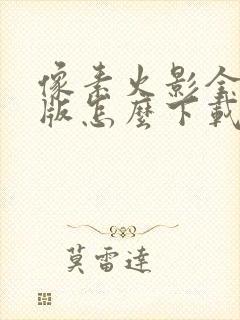 像素火影全
版怎麼下載
莫雷達